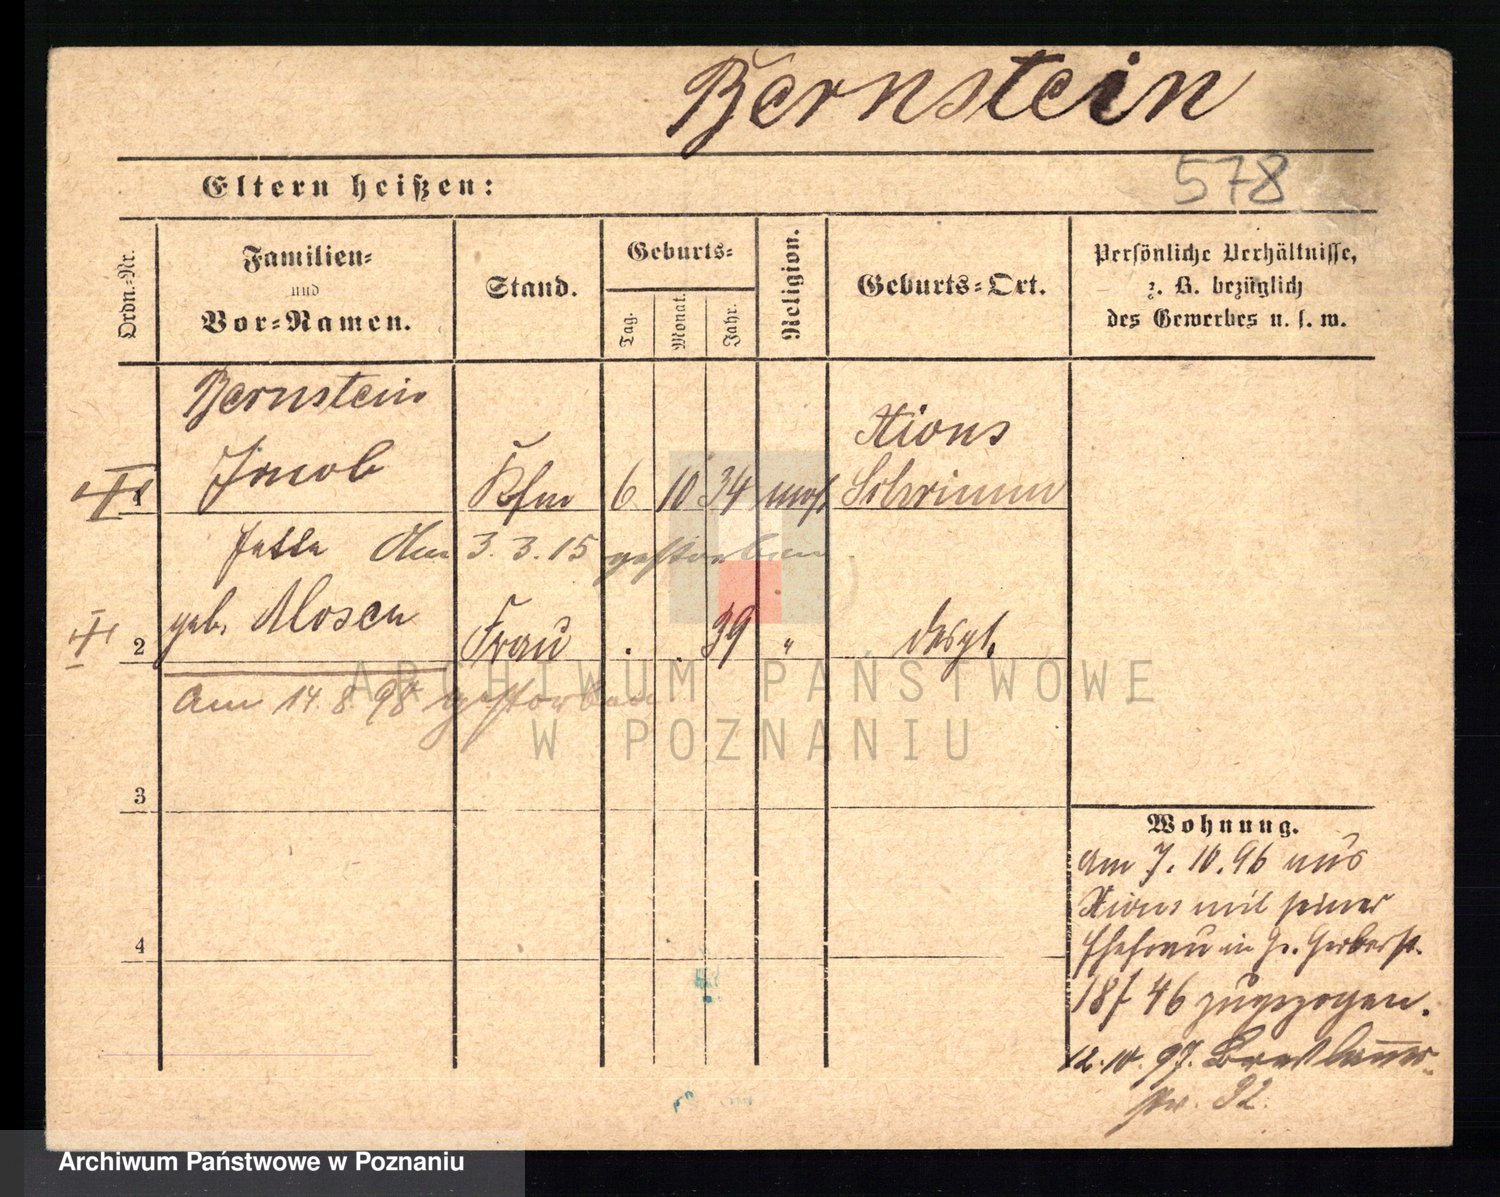 Bernstein
578
Eltern heißen:
Ordn.-Nr.
Familien-
und
Vor-Namen.
Stand.
Geburts-
Tag.
Monat.
Jahr.
Religion.
Geburts-Ort.
Persönliche Verhältnisse,
z. B. bezüglich
des Gewerbes u. s. w.
Bernstein
Jacob
1 Kfm 6 10 34 mos. Xions
Schrimm
Am 3.3.15 gestorben
geb. Mosen
2 Frau 39 " desgl.
Am 14.8.98 gestorben
3
4
Wohnung.
Am 7.10.96 aus
Xions mit seiner
Ehefrau in Gr. Gerberst.
18 / 46 zugezogen.
12.10.97. Breslauer-
str. 32.
ARCHIWUM PAŃSTWOWE
W POZNANIU
Archiwum Państwowe w Poznaniu